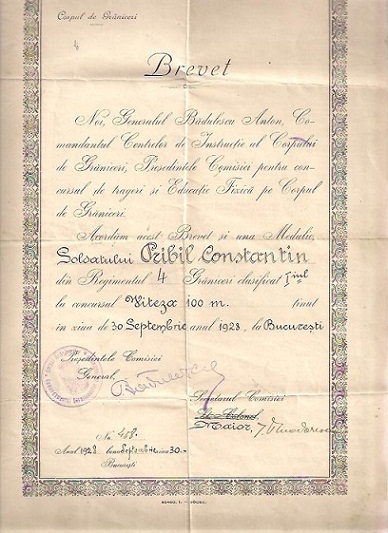 Corpul de Grăniceri
4
Brevet
Noi, Generalul Bădulescu Anton, Co-
mandantul Centrelor de Instrucție al Corpului
de Grăniceri, Președintele Comisiei pentru con-
cursul de trageri si Educație Fizică pe Corpul
de Grăniceri.
Acordăm acest Brevet si una Medalie,
Soldatului Pribil Constantin
din Regimentul 4 Grăniceri clasificat I iul
la concursul Viteza 100 m. ținut
in ziua de 30 Septembrie anul 1928, la București
Președintele Comisiei
General,
Secretarul Comisiei
Maior,
No 458.
Anul 1928 luna Septembrie ziua 30.-
București